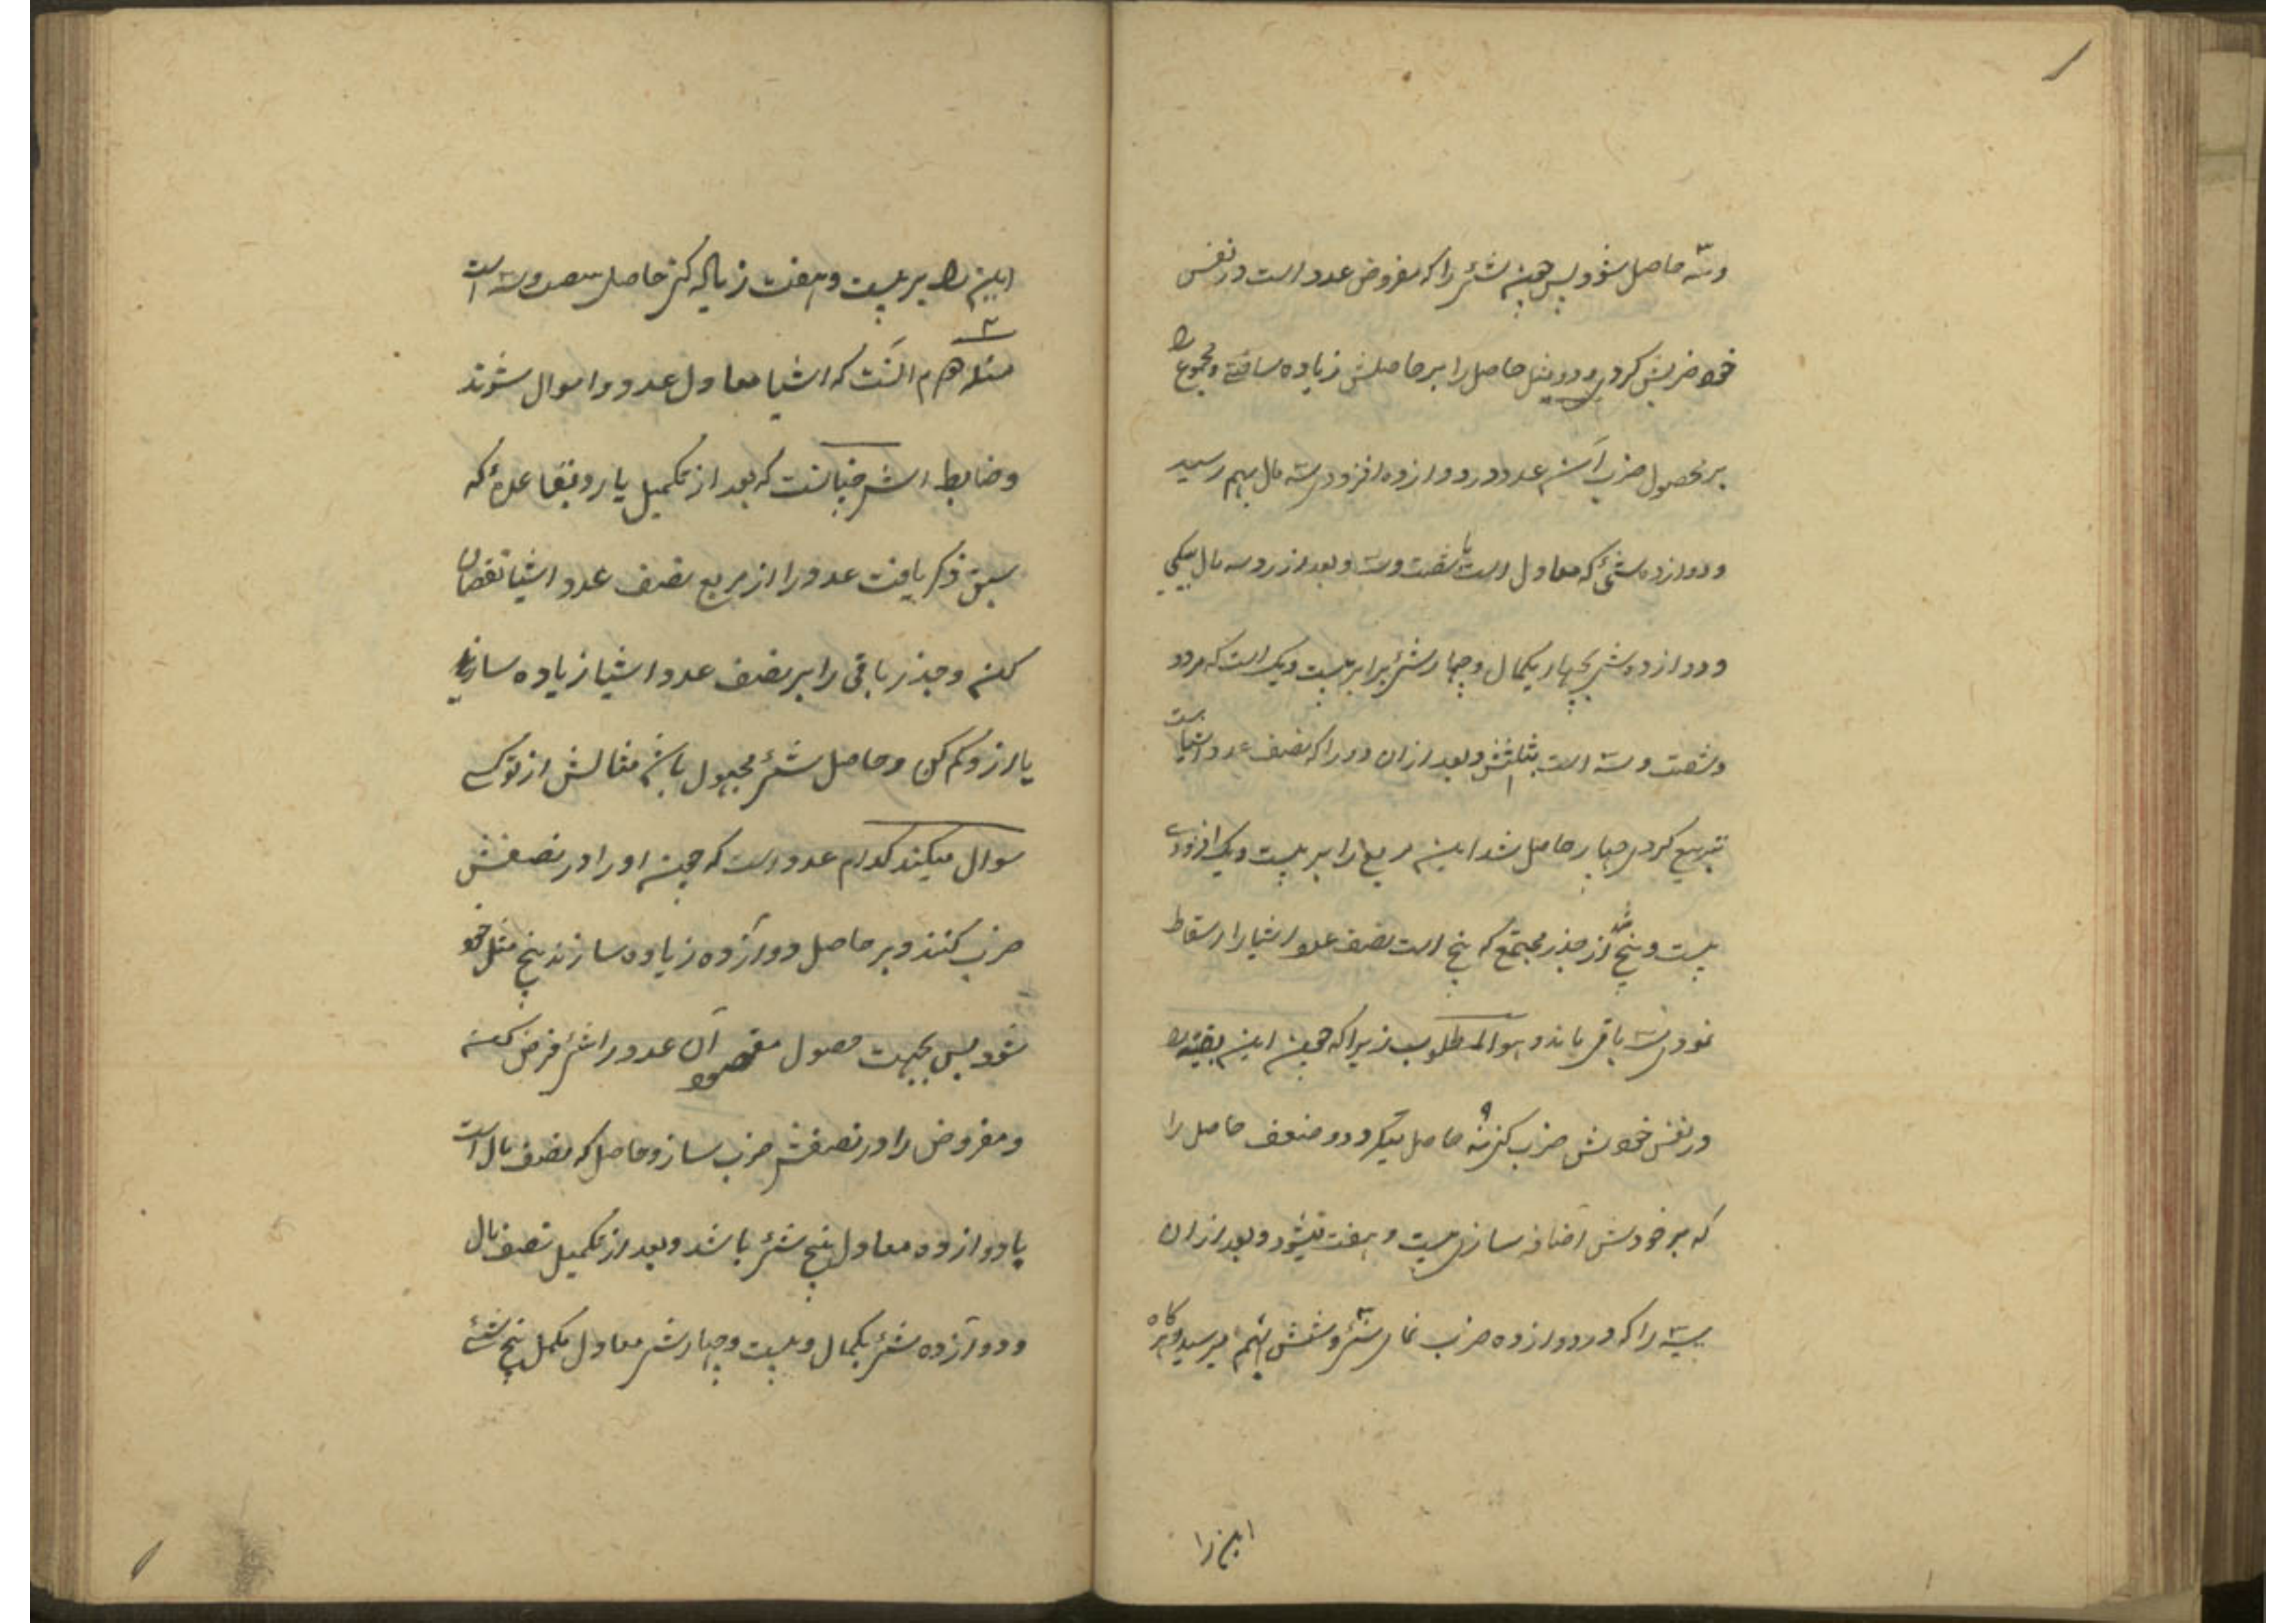 وسه حاصل شود پس همین شئ را که مفروض عدد است در نفس
خود ضربش کردی و دو مثل حاصل را بر حاصلش زیاده ساختی و مجموع را
بر محصول ضرب آن عدد در دوازده افزودی سه مال بهم رسید
و دوازده شئ که معادل است با شصت و سه و بعد از رد سه مال بیکی
و دوازده شئ بچهار یکمال و چهار شئ برابر بیست و یک است که مردود
و شصت و سه است بثلثش و بعد ازان دو را که نصف عدد اشیا است
تربیع کردی چهار حاصل شد این مربع را بر بیست و یک افزودی
بیست و پنج شد از جذر مجتمع که پنج است نصف عدد اشیا را اسقاط
نمودی سه باقی ماند و هو المطلوب زیرا که همین این بقیه را
در نفس خودش ضرب کنی نه ۹ حاصل میگردد و ضعف حاصل را
که بر خودش اضافه سازی بیست و هفت میشود و بعد ازان
سه را که در دوازده ضرب نمائی سی و شش بهم میرسد و هرگاه
این را
این را بر بیست و هفت زیاله کنی حاصل شصت و سه است
مسئله ۲ هم آنست که اشیا معادل عدد و اموال شوند
و ضابطه اش چنانست که بعد از تکمیل یا رد بقاعدهٔ که
سبق ذکر یافت عدد را از مربع نصف عدد اشیا نقصان
کن و جذر باقی را بر نصف عدد اشیا زیاده ساز
یا ازو کم کن و حاصل شئ مجهول باشد مثالش از تو کسے
سوال میکند کدام عدد است که چون او را در نصفش
ضرب کنند و بر حاصل دوازده زیاده سازند پنج مثل خود
شود پس بجهت حصول مقصود آن عدد را شئ فرض کن
و مفروض را در نصفش ضرب ساز و حاصل که نصف مال است
با دوازده معادل پنج شئ باشد و بعد از تکمیل نصف مال
و دوازده شئ یکمال و بیست و چهار شئ معادل مکمل پنج شئے